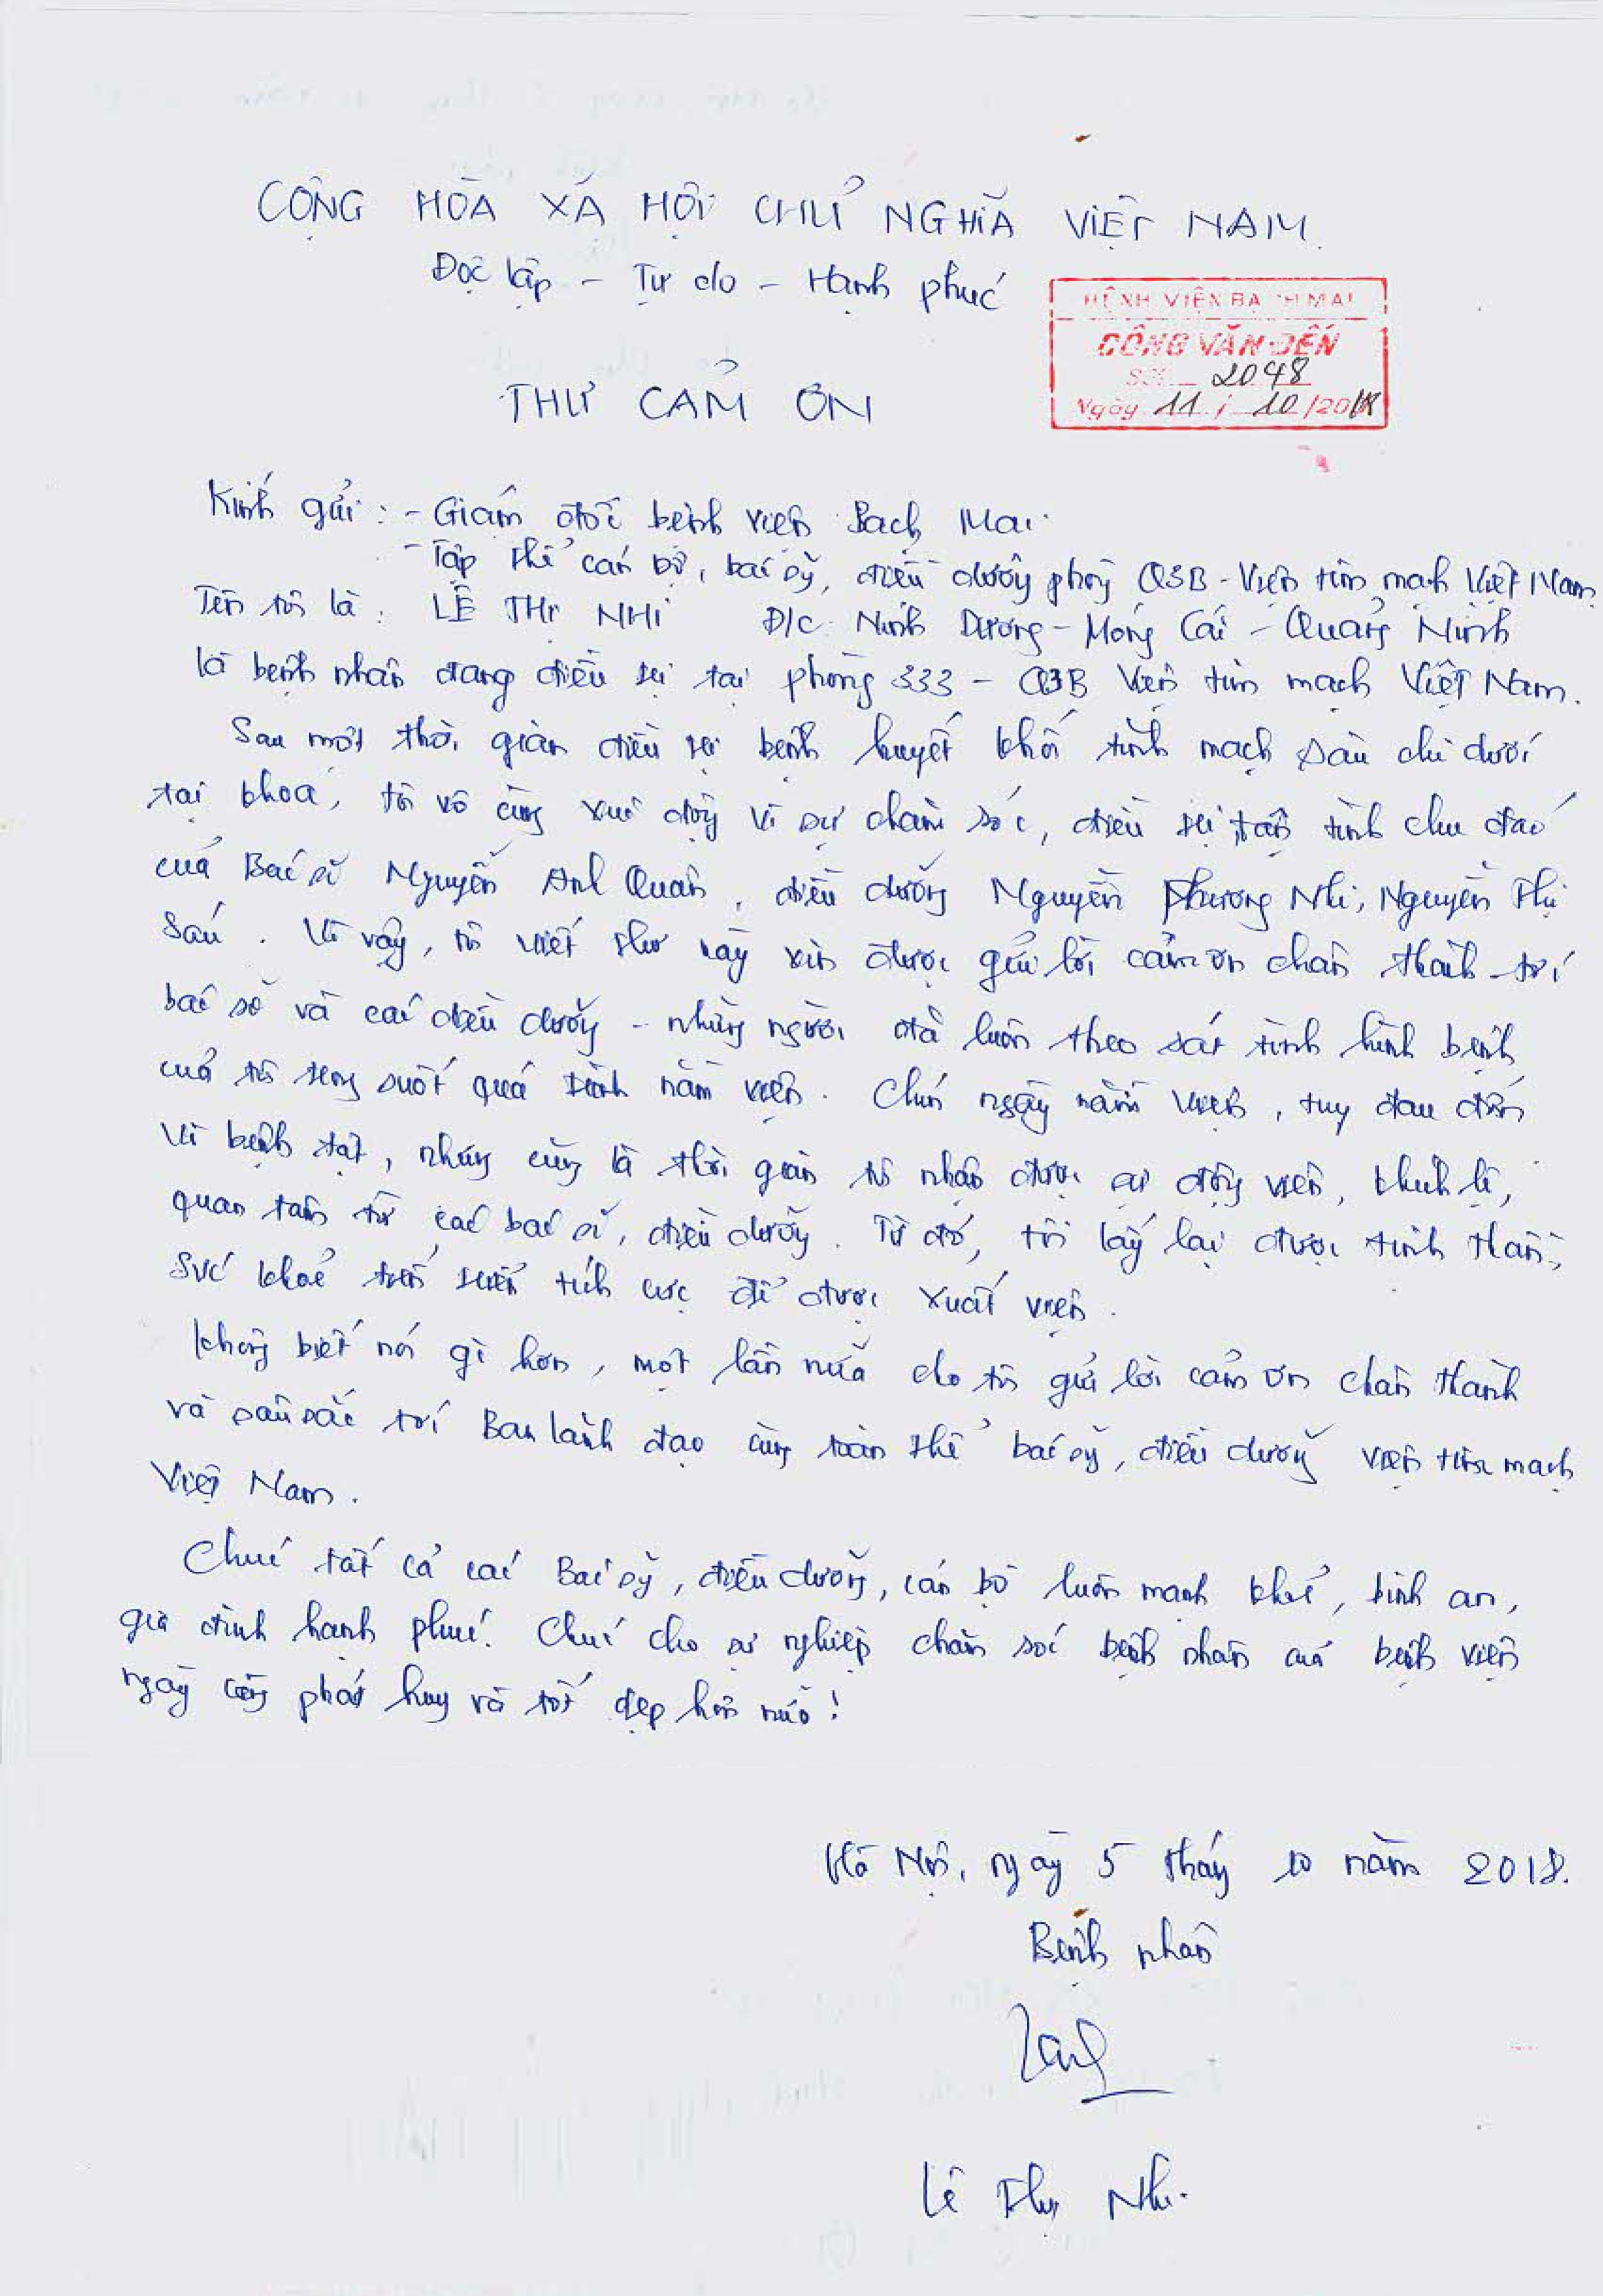 CỘNG HÒA XÃ HỘI CHỦ NGHĨA VIỆT NAM.
Độc lập - Tự do - Hạnh phúc
BỆNH VIỆN BẠCH MAI
CÔNG VĂN ĐẾN
Số: 2048
Ngày 11 / 10 /2018
THƯ CẢM ƠN
Kính gửi: - Giám đốc bệnh viện Bạch Mai.
- Tập thể cán bộ, bác sỹ, điều dưỡng phòng Q3B - Viện tim mạch Việt Nam.
Tên tôi là: LÊ THỊ NHI Đ/C: Ninh Dương - Móng Cái - Quảng Ninh
là bệnh nhân đang điều trị tại phòng 333 - Q3B Viện tim mạch Việt Nam.
Sau một thời gian điều trị bệnh huyết khối tĩnh mạch sâu chi dưới
tại khoa, tôi vô cùng xúc động vì sự chăm sóc, điều trị tận tình chu đáo
của Bác sĩ Nguyễn Anh Quân, điều dưỡng Nguyễn Phương Nhi, Nguyễn Thị
Sáu. Vì vậy, tôi viết thư này xin được gửi lời cảm ơn chân thành tới
bác sĩ và các điều dưỡng - những người đã luôn theo sát tình hình bệnh
của tôi trong suốt quá trình nằm viện. Chính ngày nằm viện, tuy đau đớn
vì bệnh tật, nhưng cũng là thời gian tôi nhận được sự động viên, khích lệ,
quan tâm từ các bác sĩ, điều dưỡng. Từ đó, tôi lấy lại được tinh thần,
sức khoẻ tiến triển tích cực để được xuất viện.
Không biết nói gì hơn, một lần nữa cho tôi gửi lời cảm ơn chân thành
và sâu sắc tới Ban lãnh đạo cùng toàn thể bác sỹ, điều dưỡng viện tim mạch
Việt Nam.
Chúc tất cả các Bác sỹ, điều dưỡng, cán bộ luôn mạnh khoẻ, bình an,
gia đình hạnh phúc. Chúc cho sự nghiệp chăm sóc bệnh nhân của bệnh viện
ngày càng phát huy và tốt đẹp hơn nữa!
Hà Nội, ngày 5 tháng 10 năm 2018.
Bệnh nhân
Lê Thị Nhi.